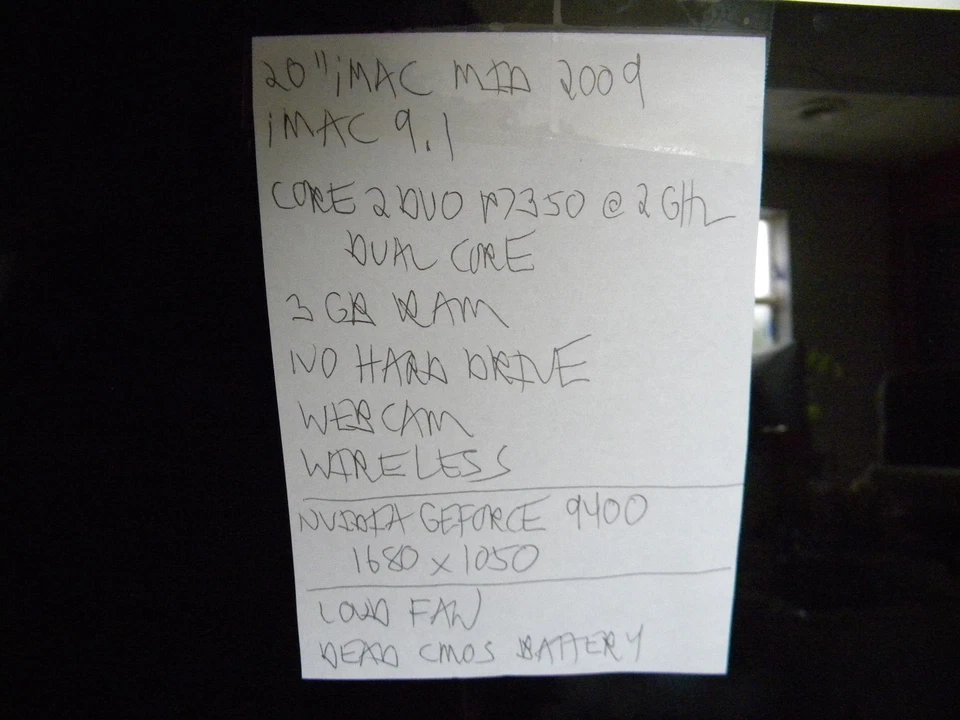 20" iMAC MID 2009
iMAC 9.1
CORE 2 DUO P7350 @ 2 GHz
DUAL CORE
3 GB RAM
NO HARD DRIVE
WEBCAM
WIRELESS
NVIDIA GEFORCE 9400
1680 x 1050
LOUD FAN
DEAD CMOS BATTERY